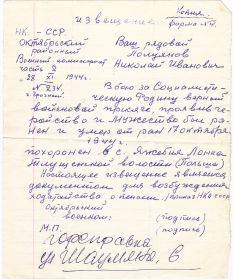 Копия.
извещение
форма № 4.
НК. – ССР.
Октябрьский
районный
Военный комиссариат
часть 2
28 XI 1944г.
№ 234.
г. Грозный.
Ваш рядовой
Полуянов
Николай Иванович
В бою за Социалисти-
ческую Родину верный
воинской присяге, проявив ге-
ройство и мужество был ра-
нен и умер от ран 17 октября
1944г.
похоронен в с. Яжевия Лонка
волости (Польша)
Настоящее извещение является
документом для возбуждения
ходатайства о пенсии (приказ НКО СССР
Октябрьский
военком: (подпись)
М.П. (подпись)
горсправка
ул Шаумяна, 6